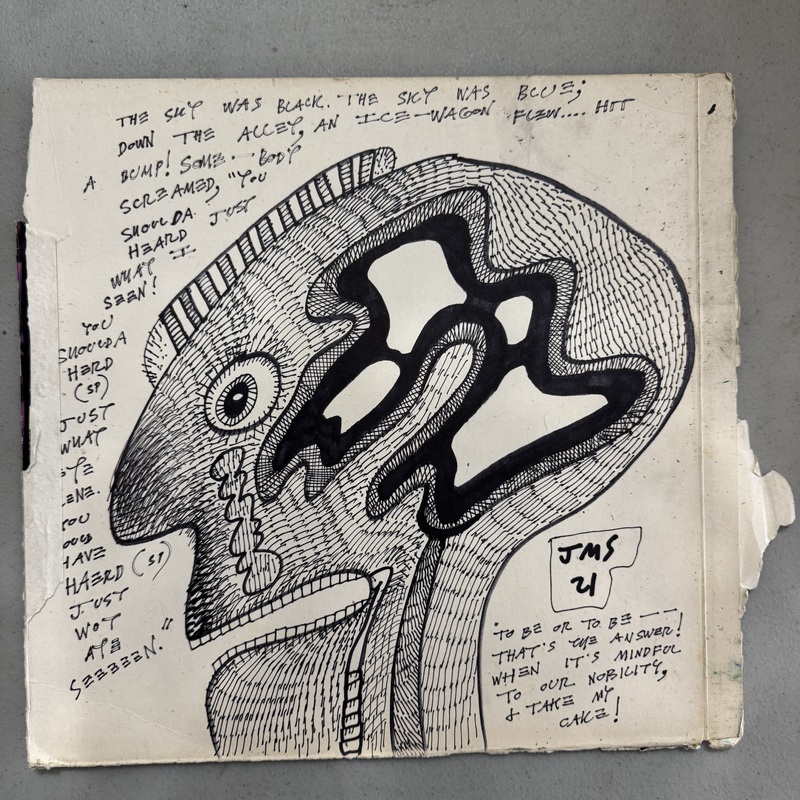 THE SKY WAS BLACK. THE SKY WAS BLUE;
DOWN THE ALLEY, AN ICE-WAGON FLEW.... HIT
A BUMP! SOME--BODY
SCREAMED, "YOU
SHOULDA JUST
HEARD
WHAT I
SEEN!
YOU
SHOULDA
HERD
(SP)
JUST
WHAT
EYE
ENE.
YOU
HAVE
HAERD (SP)
JUST
WOT
AYE
SEEEEEN."
JMS
21
"TO BE OR TO BE ——
THAT'S THE ANSWER!
WHEN IT'S MINDFUL
TO OUR NOBILITY,
& TAKE MY
CAKE!